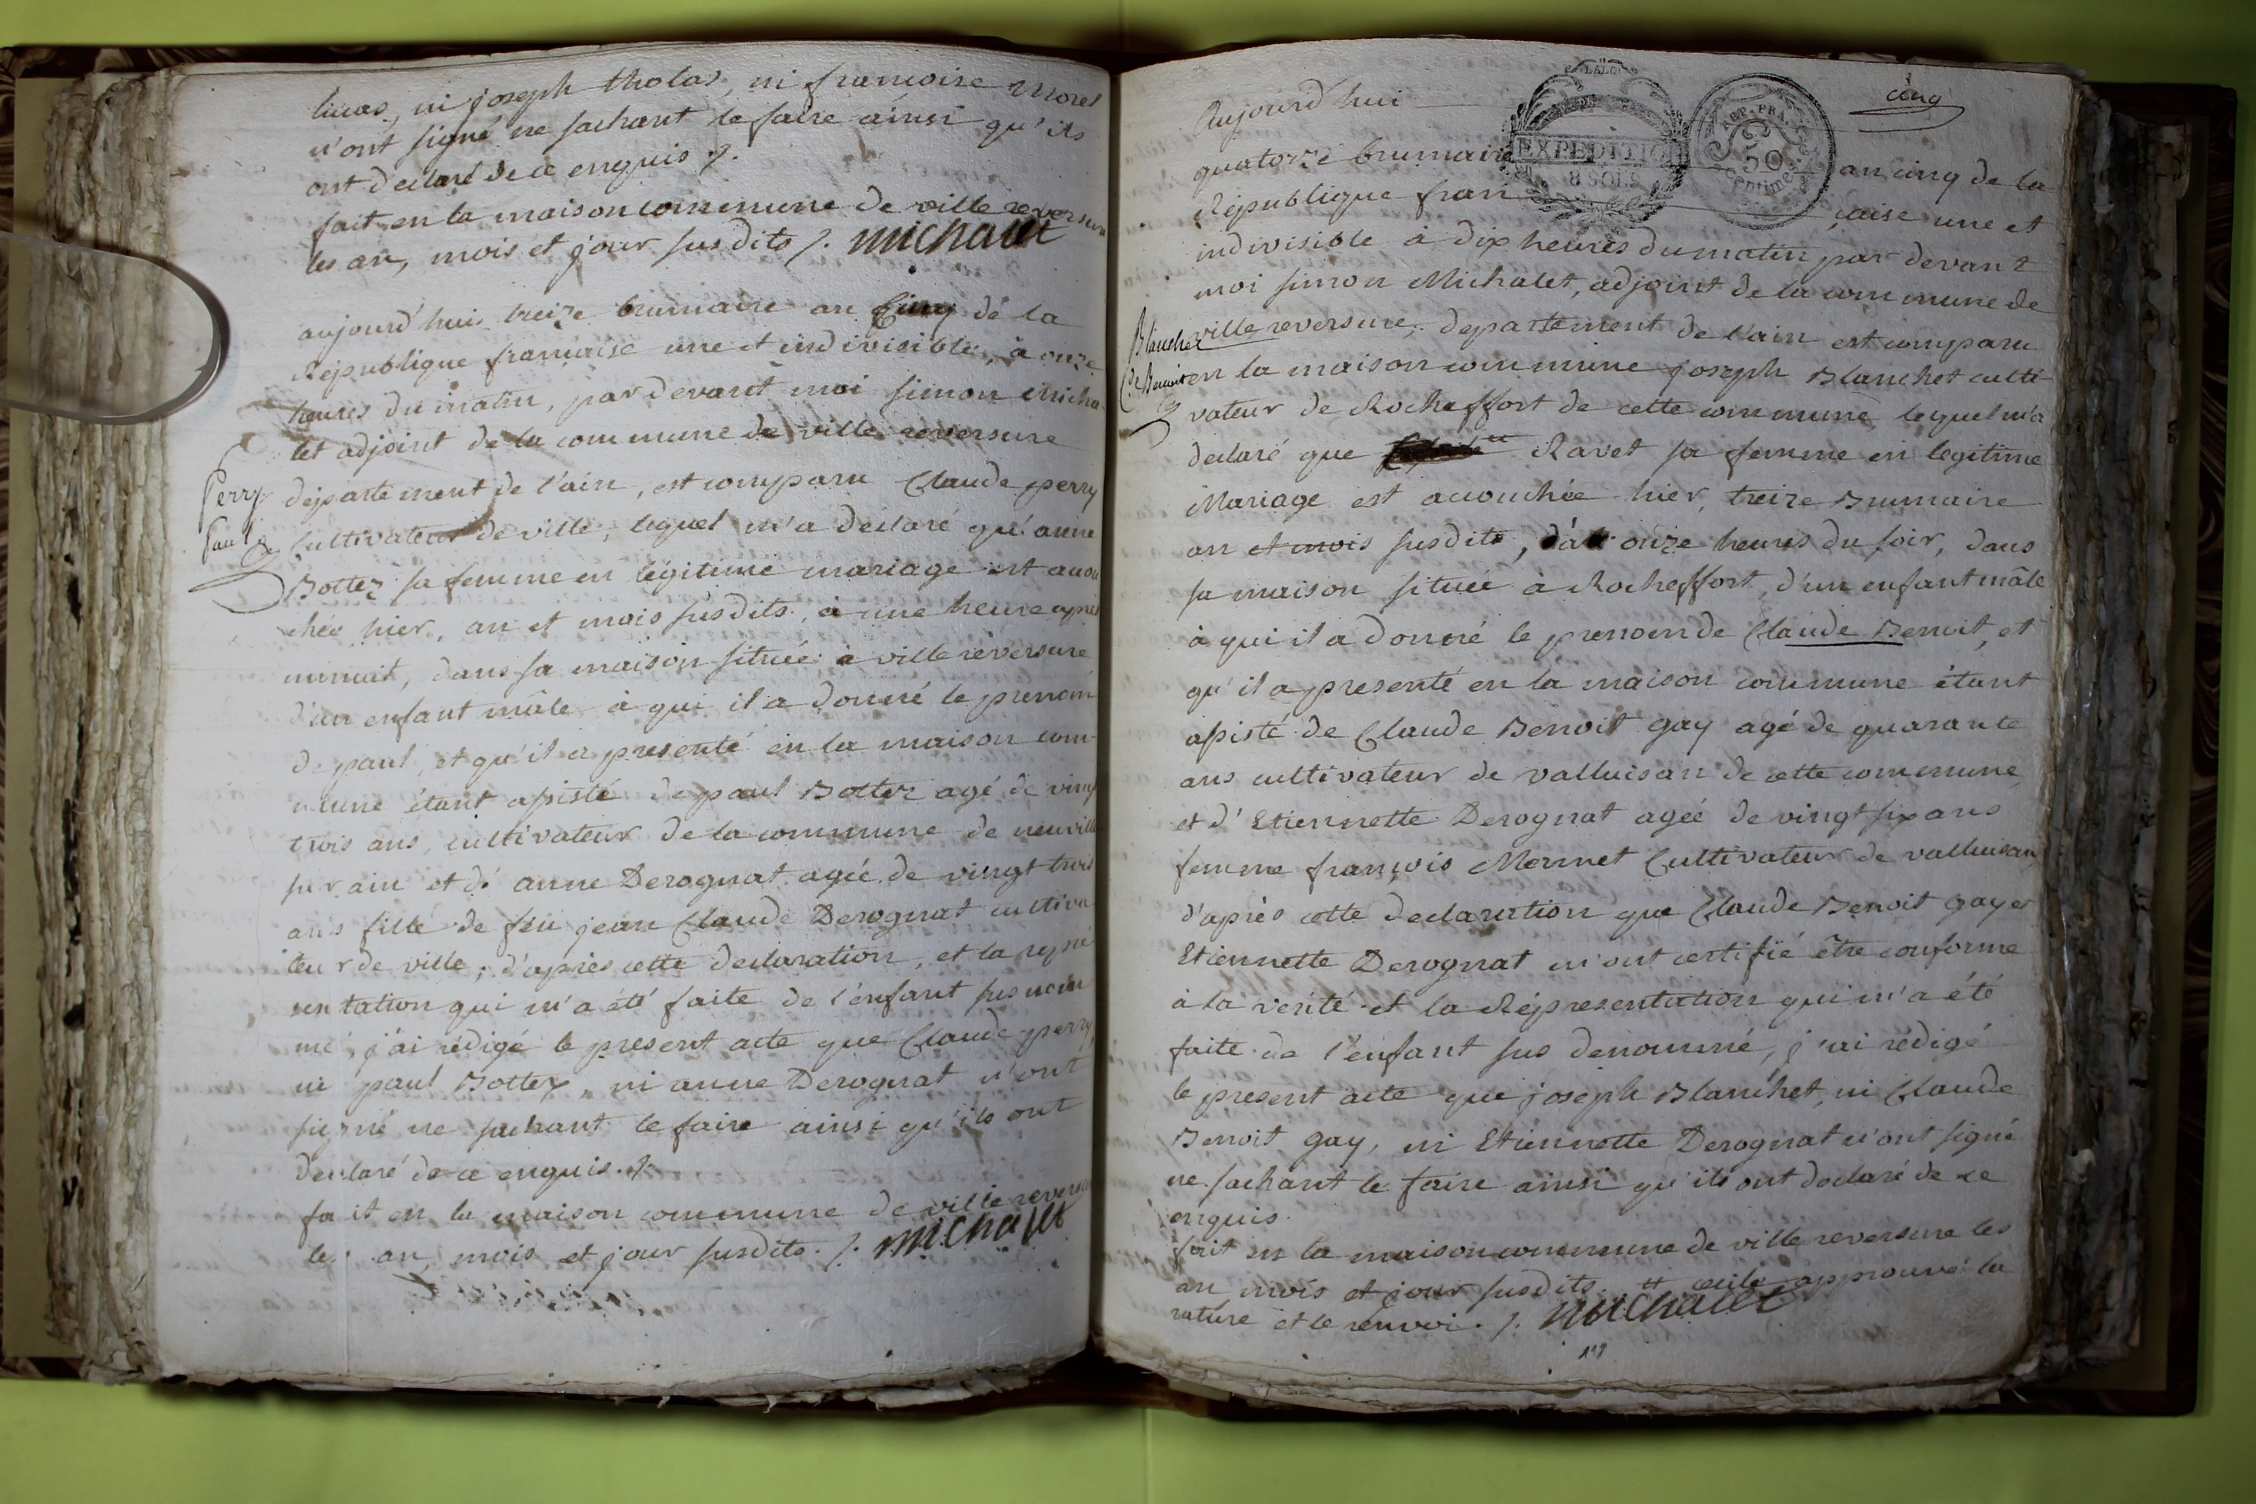 lucas, ni joseph tholas, ni francoise Morel
n'ont signé ne sachant le faire ainsi qu'ils
ont declaré de ce enquis ./.
fait en la maison commune de ville reversure
les an, mois et jour susdits ./. michalet
aujourd'hui treize brumaire an Cinq de la
République francaise une et indivisible, à onze
heures du matin, par devant moi simon micha
let adjoint de la commune de ville reversure
Perry
departement de l'ain, est comparu Claude perry
Paul
Cultivateur de ville, lequel m'a declaré qu'anne
Bottez sa femme en légitime mariage est accou
chée hier, an et mois susdits, à une heure après
minuit, dans sa maison située à ville reversure
d'un enfant mâle à qui il a donné le prenom
de paul, et qu'il a presenté en la maison com-
mune étant assisté de paul Bottez agé de vingt
trois ans, cultivateur de la commune de neuville
sur ain et d'anne Derognat agée de vingt trois
ans fille de feu jean Claude Derognat cultiva
teur de ville, d'après cette declaration, et la repré
sentation qui m'a été faite de l'enfant susnom
mé, j'ai rédigé le present acte que Claude perry,
ni paul Bottez, ni anne Derognat n'ont
signé ne sachant le faire ainsi qu'ils ont
declaré de ce enquis ./.
fait en la maison commune de ville reversure
les an, mois et jour susdits ./. michalet
cinq
EXPEDITION
8 SOLS
REP. FRA.
50
Centimes
Aujourd'hui
quatorze brumaire an cinq de la
République fran çaise une et
indivisible à dix heures du matin par devant
moi simon Michalet, adjoint de la commune de
Blanchet
ville reversure, departement de l'ain est comparu
C.de Benoit
en la maison commune joseph Blanchet culti-
vateur de Rocheffort de cette commune lequel m'a
declaré que tt Ravet sa femme en legitime
Mariage est accouchée hier, treize Brumaire
an et mois susdits, à onze heures du soir, dans
sa maison située à Rocheffort, d'un enfant mâle
à qui il a donné le prenom de Claude Benoit, et
qu'il a presenté en la maison commune étant
assisté de Claude Benoit gay agé de quarante
ans cultivateur de valluisan de cette commune
et d'Etiennette Derognat agée de vingt six ans
femme françois Mermet Cultivateur de valluisan,
d'après cette declaration que Claude Benoit gay et
Etiennette Derognat m'ont certifié être conforme
à la verité et la Répresentation qui m'a été
faite de l'enfant sus denommé, j'ai rédigé
le present acte que joseph Blanchet, ni Claude
Benoit gay, ni Etiennette Derognat n'ont signé
ne sachant le faire ainsi qu'ils ont declaré de ce
enquis.
fait en la maison commune de ville reversure les
an mois et jour susdits. tt approuvé la
rature et le renvoi ./. michalet